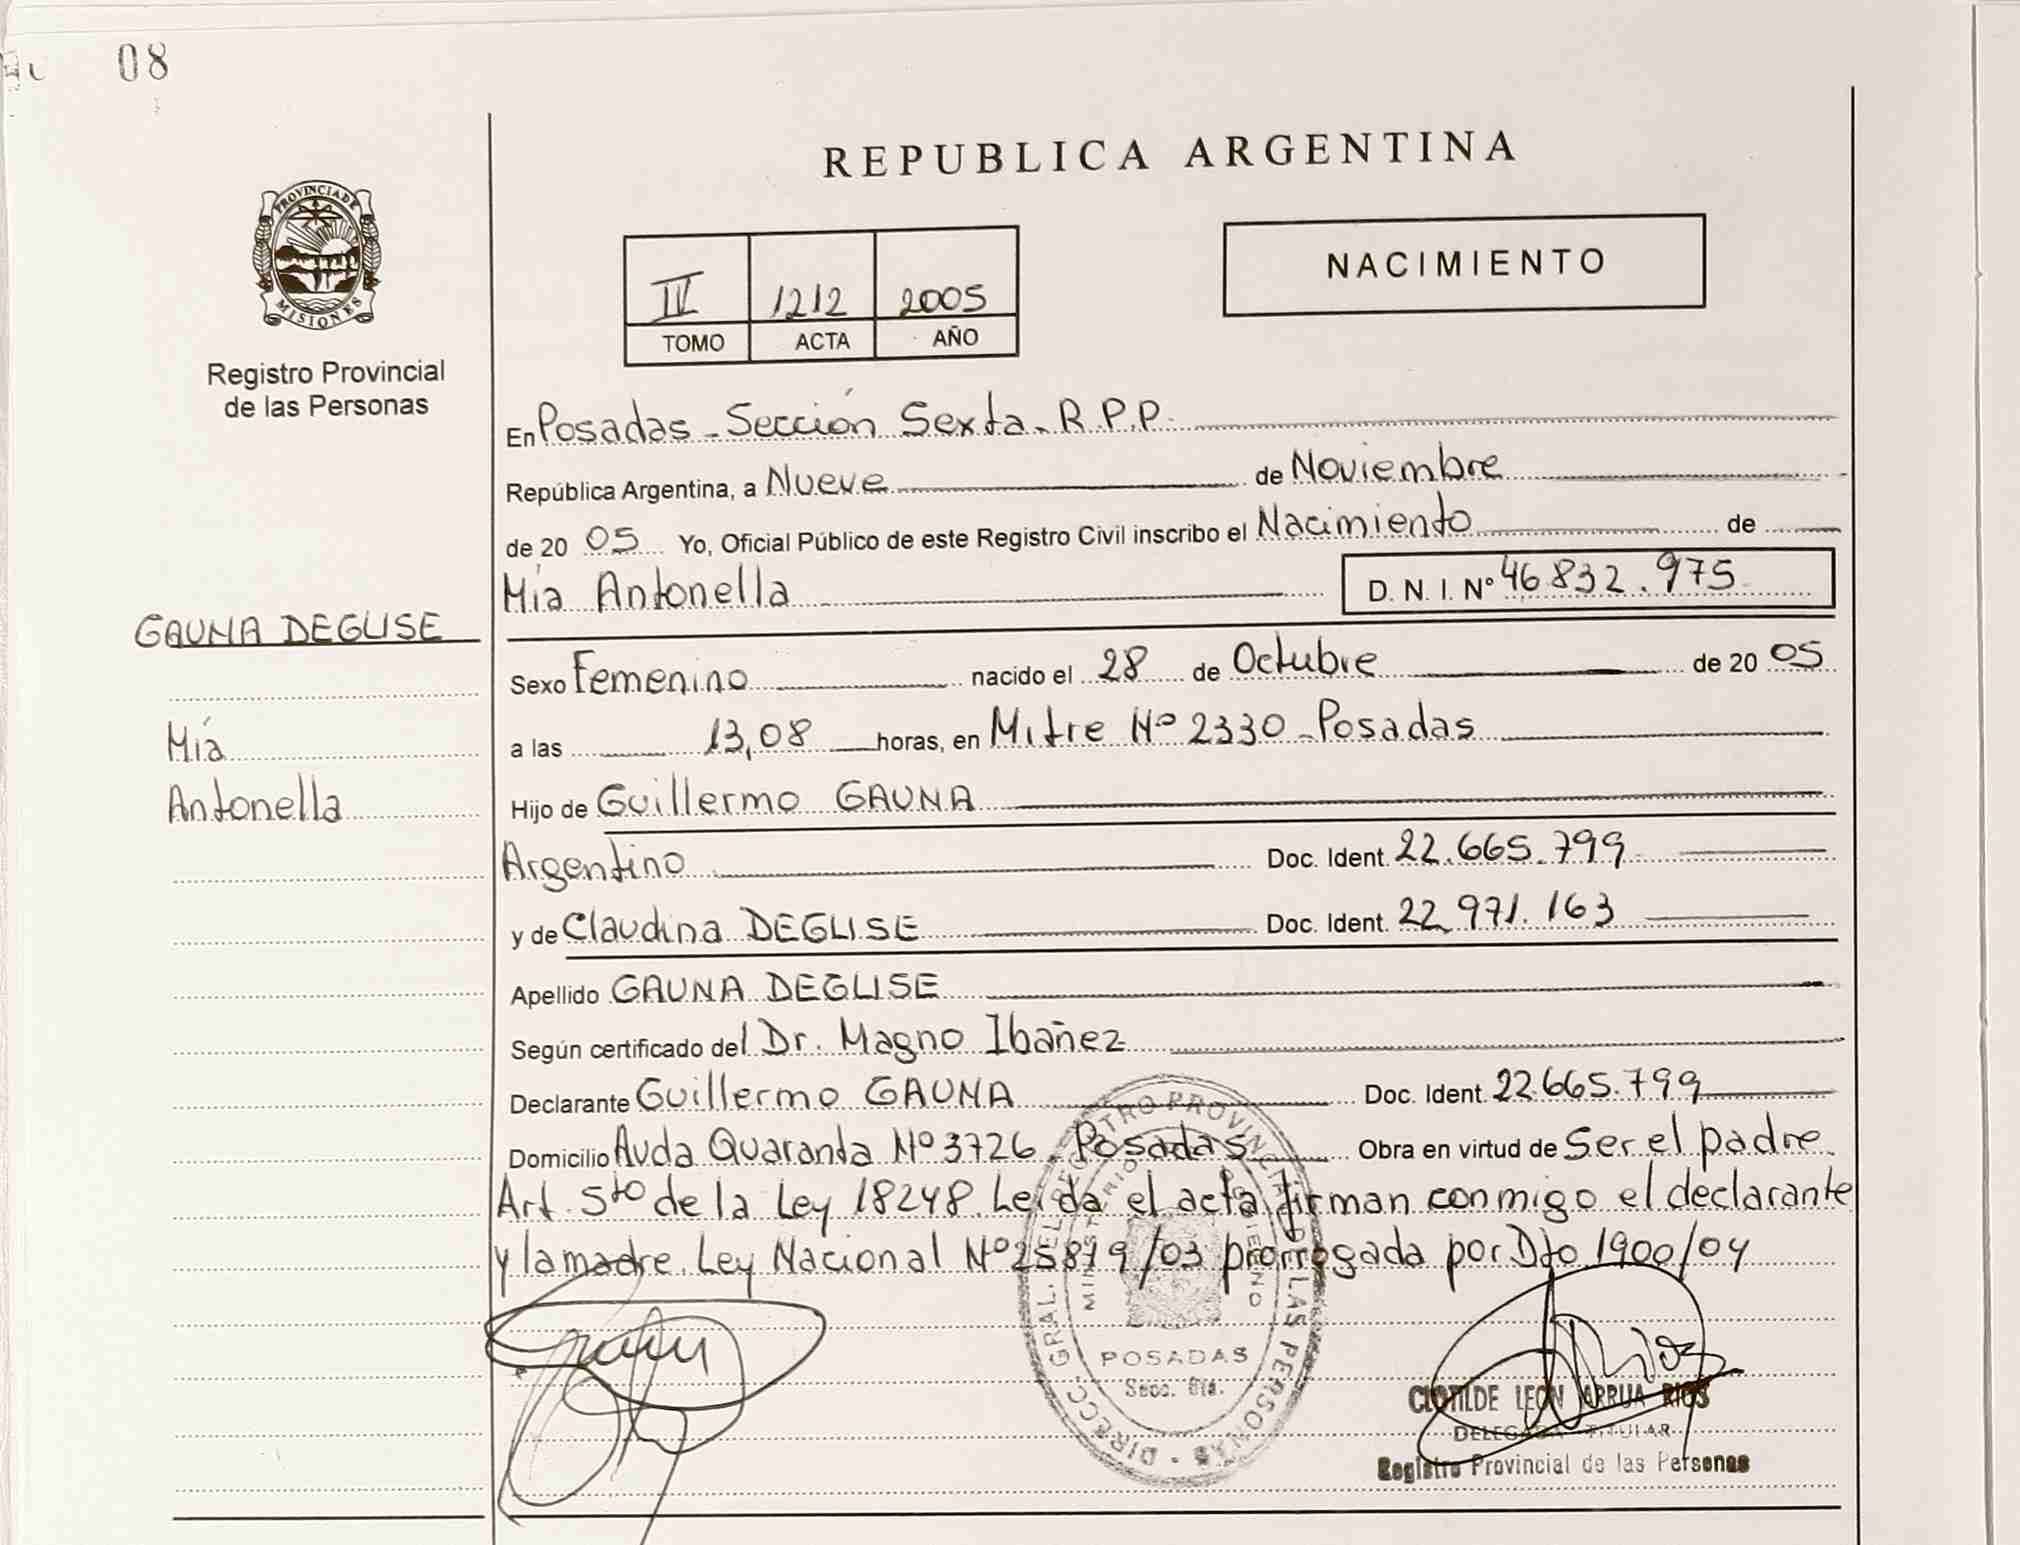 08
REPUBLICA ARGENTINA
PROVINCIA DE
MISIONES
Registro Provincial
de las Personas
IV 1212 2005
TOMO ACTA AÑO
NACIMIENTO
En Posadas - Sección Sexta - R.P.P.
República Argentina, a Nueve de Noviembre
de 20 05 Yo, Oficial Público de este Registro Civil inscribo el Nacimiento de
Mía Antonella D. N. I. Nº 46.832.975
GAUNA DEGLISE
Mía
Antonella
Sexo Femenino nacido el 28 de Octubre de 20 05
a las 13,08 horas, en Mitre Nº 2330 - Posadas
Hijo de Guillermo GAUNA
Argentino Doc. Ident. 22.665.799
y de Claudina DEGLISE Doc. Ident. 22.971.163
Apellido GAUNA DEGLISE
Según certificado del Dr. Magno Ibañez
Declarante Guillermo GAUNA Doc. Ident. 22.665.799
Domicilio Avda Quaranta Nº 3726 - Posadas Obra en virtud de Ser el padre.
Art. 5to de la Ley 18248. Leída el acta firman conmigo el declarante
y la madre. Ley Nacional Nº 25819/03 prorrogada por Dto 1900/04
DIRECC. GRAL. DEL REGISTRO PROVINCIAL DE LAS PERSONAS
MINISTERIO DE GOBIERNO
POSADAS
Secc. 6ta.
CLOTILDE LEON ARRUA RIOS
DELEGADA TITULAR
Registro Provincial de las Personas